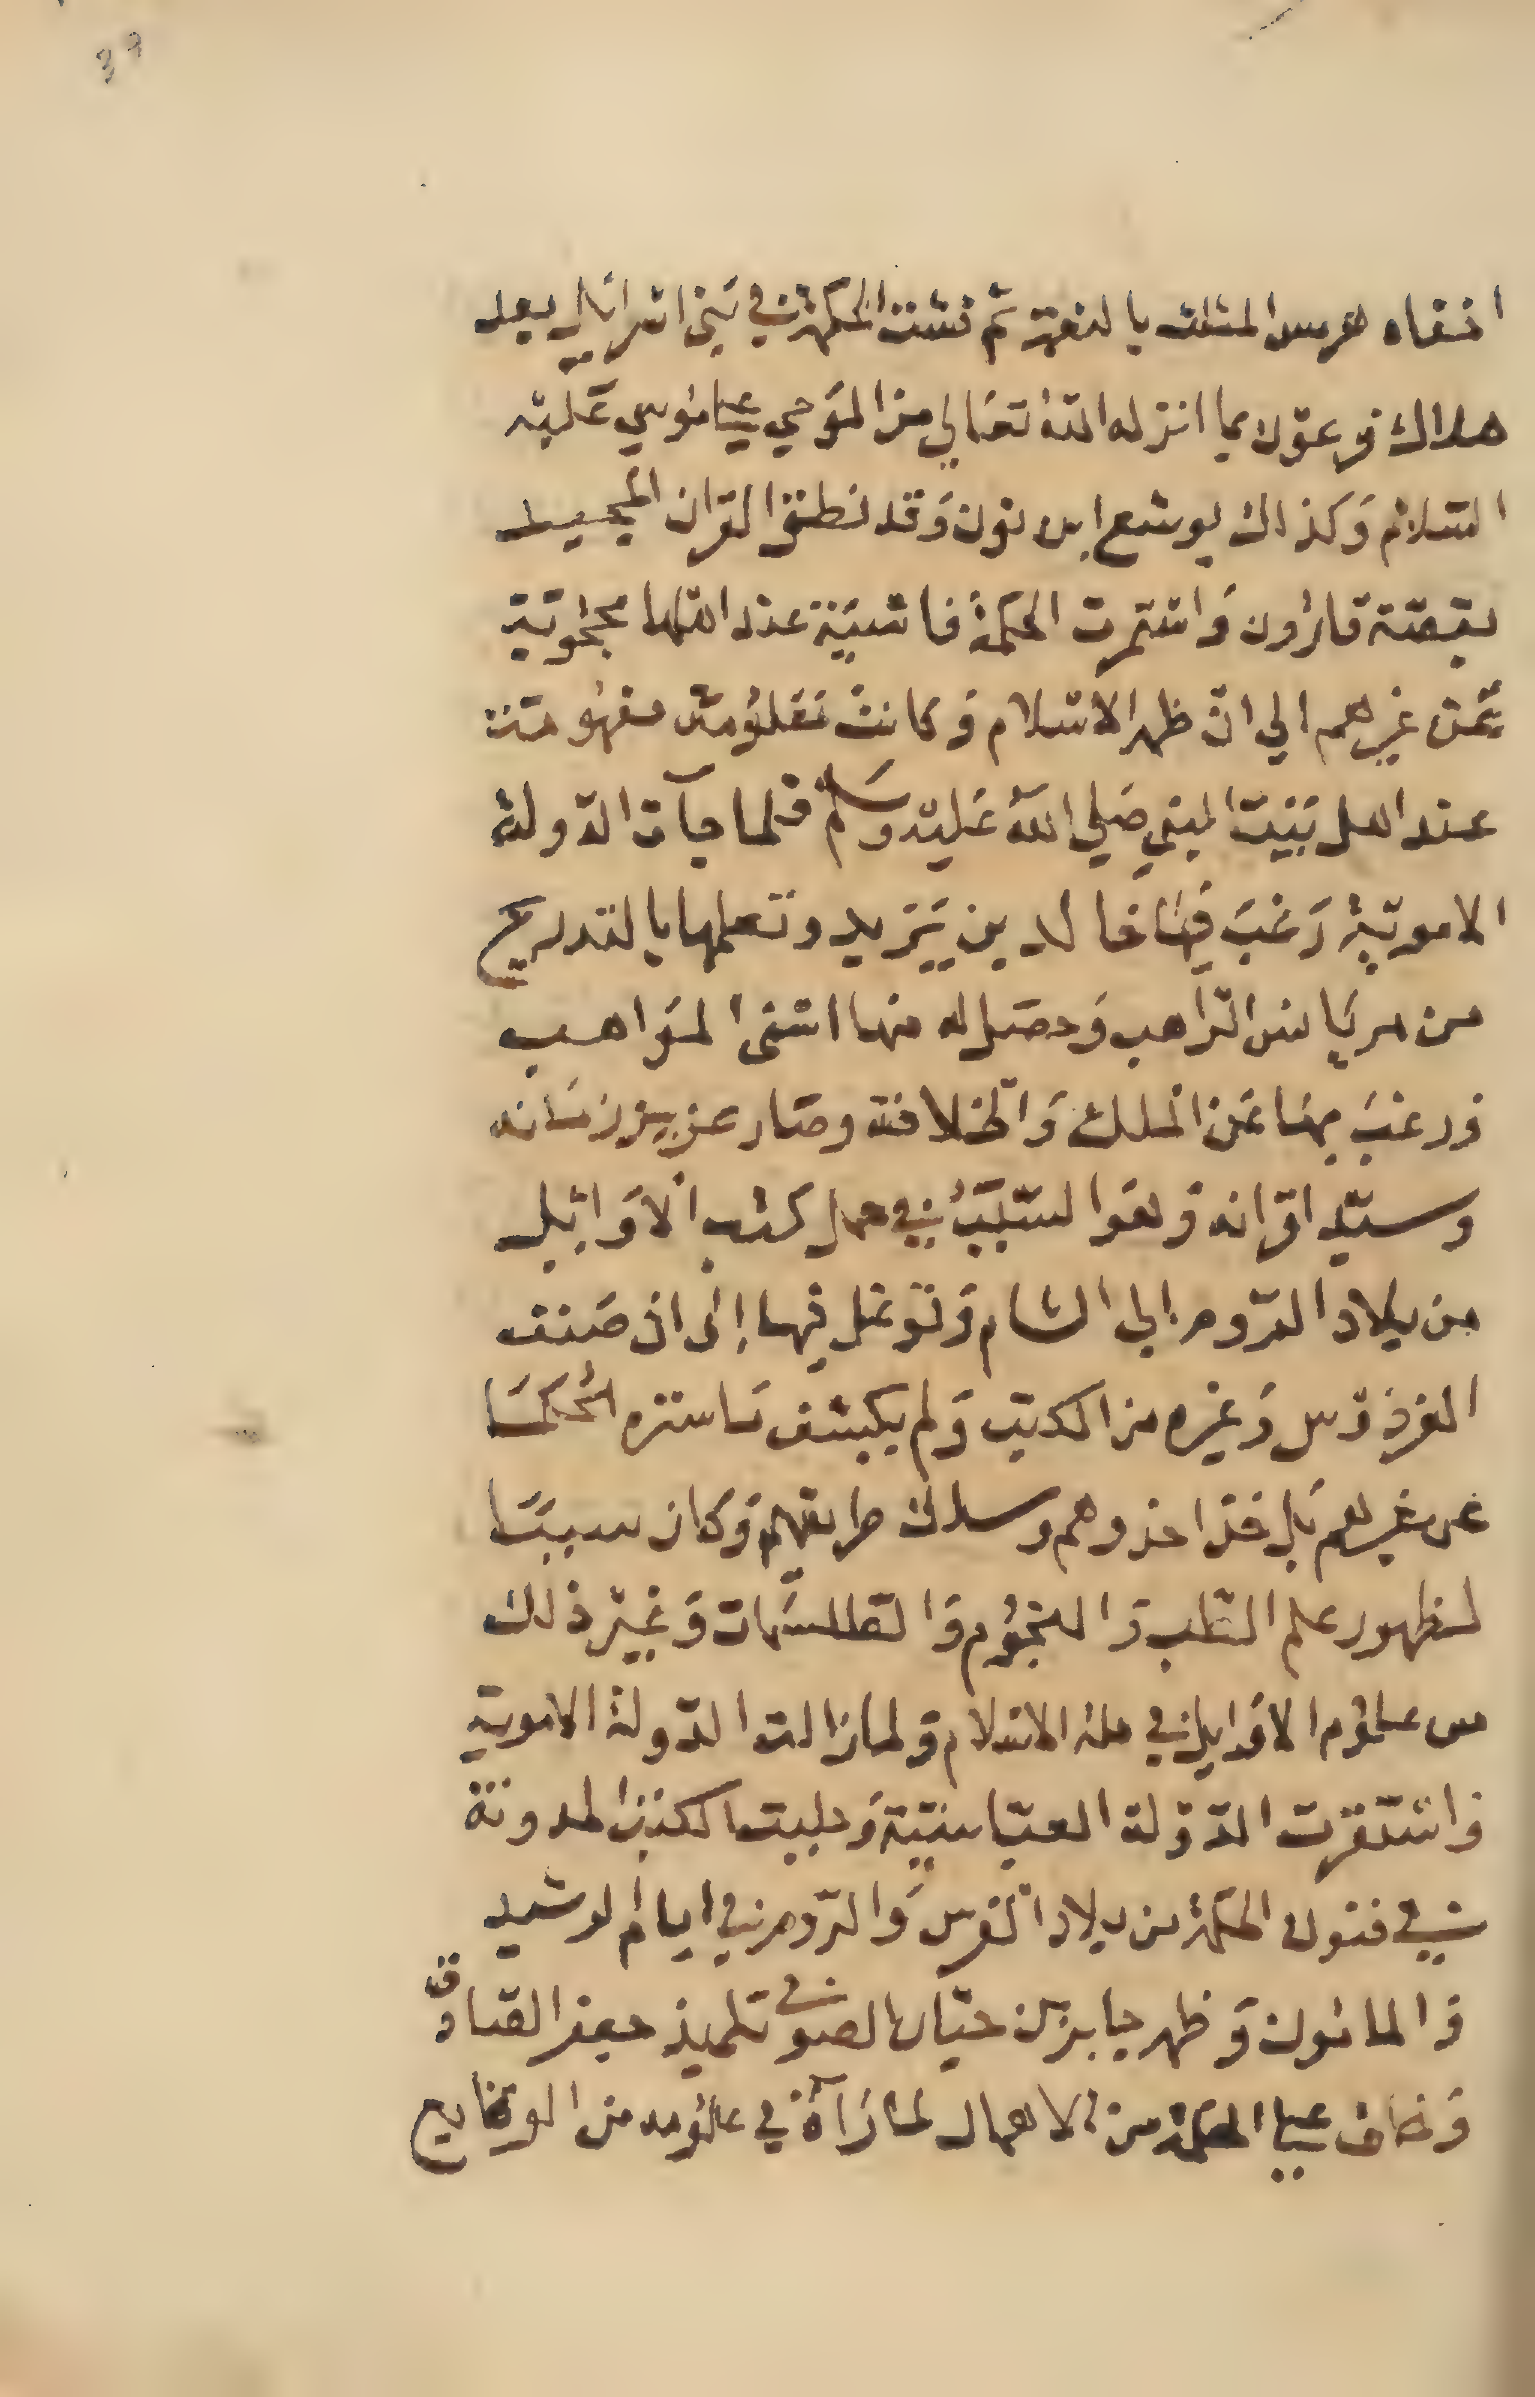 37
اخفاه هرمس المثلث بالنعمة ثم فشت الحكمة في بني اسرائيل بعد
هلاك فرعون بما انزله الله تعالي من الوحي علي موسي عليه
السلام وكذلك يوشع ابن نون وقد نطق القران المجيد
بقصة قارون واستمرت الحكمة فاشية عند اهلها محجوبة
عمن غيرهم الي ان ظهر الاسلام وكانت معلومة مفهومة
عند اهل بيت النبي صلي الله عليه وسلم فلما جآت الدولة
الاموية رغب فيها خالد بن يزيد وتعلمها بالتدريج
من مريانس الراهب وحصل له منها اسنى المواهب
ورغب بها عن الملك والخلافة وصار عزيز زمانه
وسيد اقرانه وهوا لسبب في حمل كتب الاوائل
من بلاد الروم الي الشام وتوغل فيها إلى ان صنف
الفردوس وغيره من الكتب ولم يكشف ما ستره الحكما
عن غيرهم بل حذا حذوهم وسلك طريقهم وكان سببا
لظهور علم الطب والنجوم والطلسمات وغير ذلك
من علوم الاوايل في ملة الاسلام ولما زالت الدولة الاموية
واستقرت الدولة العباسية وجلبت الكتب المدونة
في فنون الحكمة من بلاد الفرس والروم في ايام الرشيد
والمامون وظهر جابر بن حيان الصوفي تلميذ جعفر الصادق
وخاف علي الحكمة من الاهمال لما رآه في علومه من الوقايع